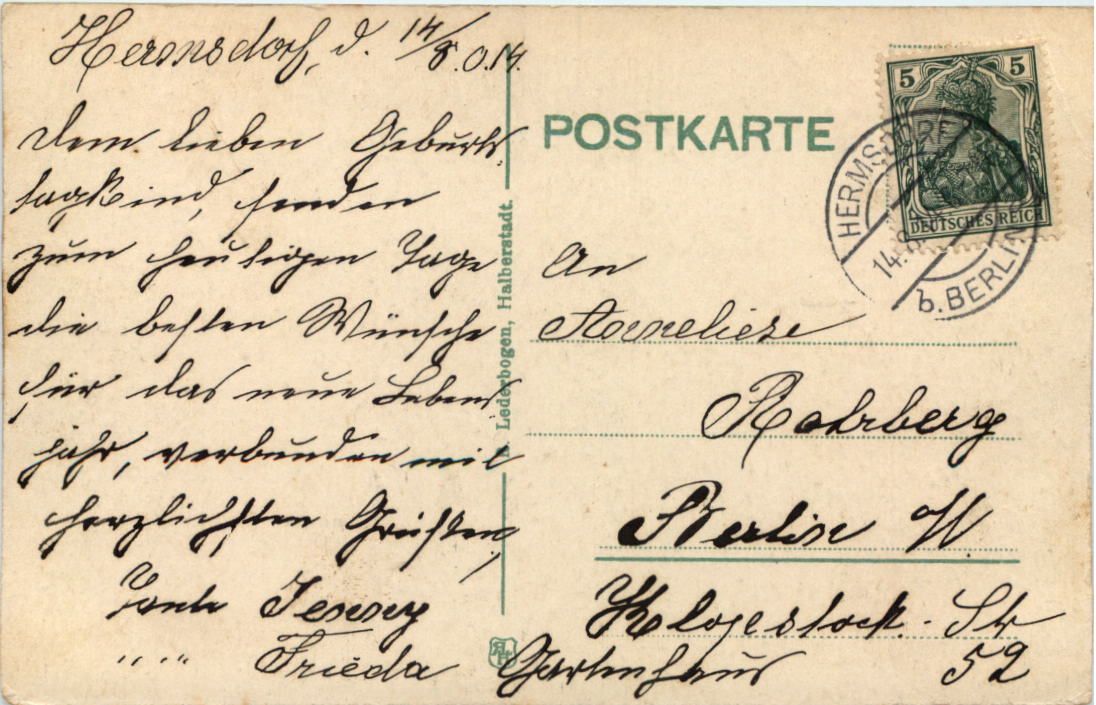 Hermsdorf, d. 14/8.0.14.
Dem lieben Geburts
tagskind, senden
zum heutigen Tage
die besten Wünsche
für das neue Lebens
jahr, verbunden mit
herzlichsten Grüßen,
Tante Jenny
" " " " Frieda
Lederbogen, Halberstadt.
POSTKARTE
5 5
DEUTSCHES REICH
HERMSDORF
14.8
b. BERLIN
An
Anneliese
Rohrberg
Berlin W.
Klopstock-Str
Gartenhaus 52